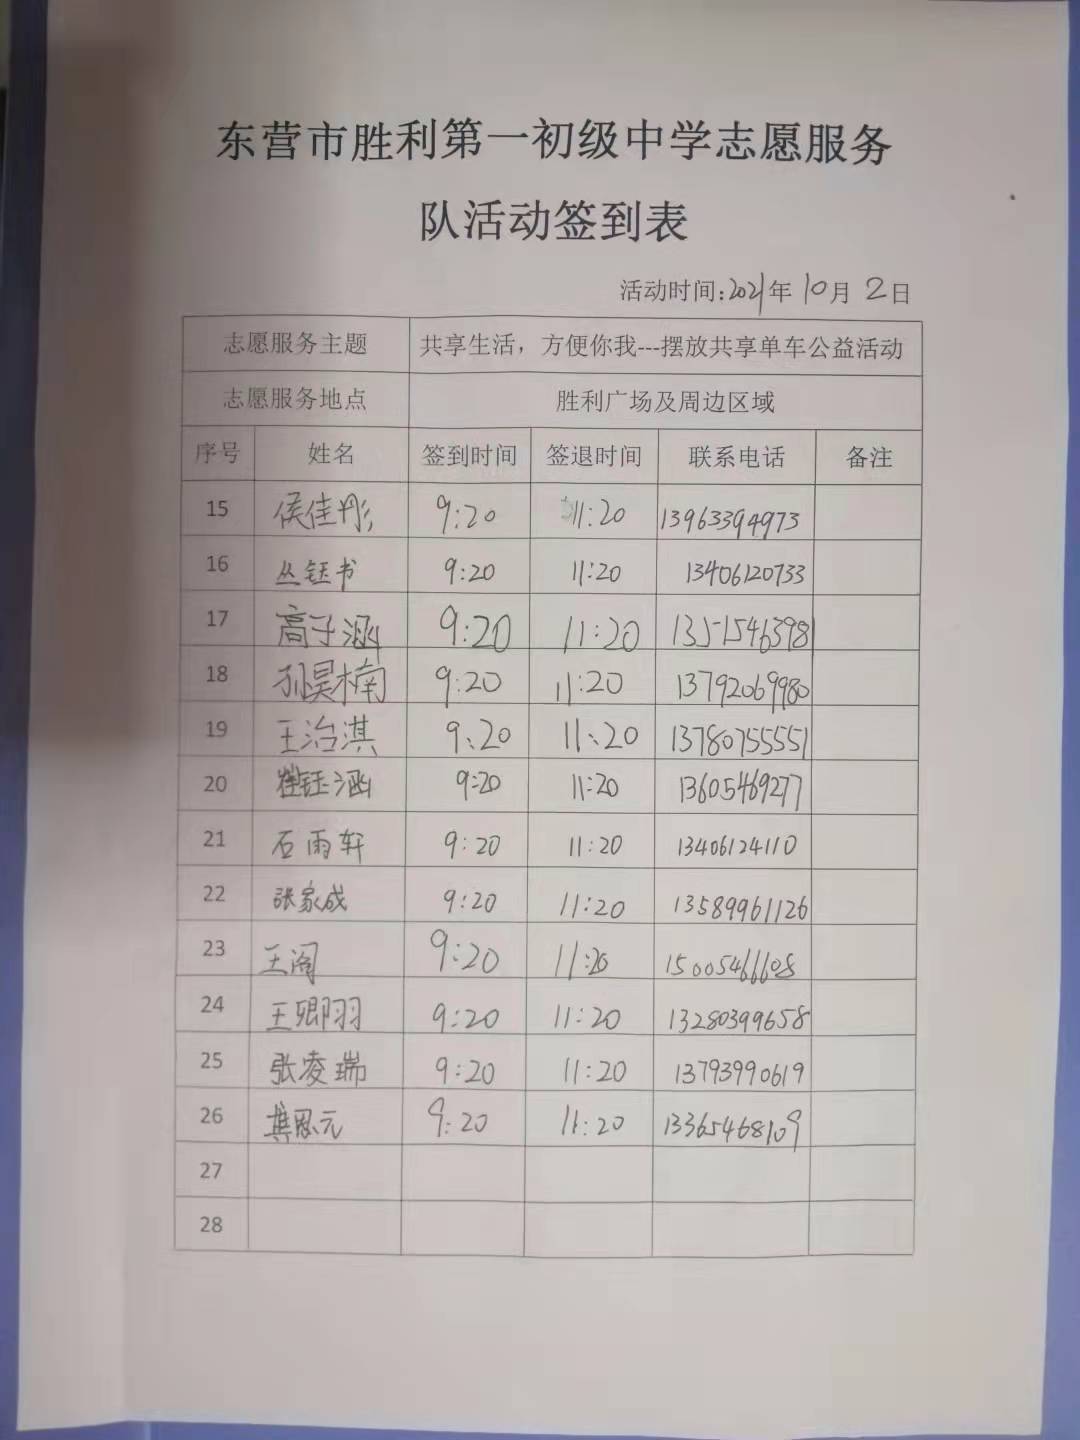 东营市胜利第一初级中学志愿服务
队活动签到表
活动时间:2021年10月2日
志愿服务主题 共享生活，方便你我---摆放共享单车公益活动
志愿服务地点 胜利广场及周边区域
序号 姓名 签到时间 签退时间 联系电话 备注
15 侯佳彤 9:20 11:20 13963394973
16 丛钰书 9:20 11:20 13406120733
17 高子涵 9:20 11:20 13515463981
18 孙昊楠 9:20 11:20 13792069980
19 王治淇 9:20 11:20 13780755551
20 崔钰涵 9:20 11:20 13605469277
21 石雨轩 9:20 11:20 13406124110
22 张家成 9:20 11:20 13589961126
23 王阁 9:20 11:20 15005466608
24 王卿羽 9:20 11:20 13280399658
25 张凌瑞 9:20 11:20 13793990619
26 9:20 11:20 13365468109
27
28